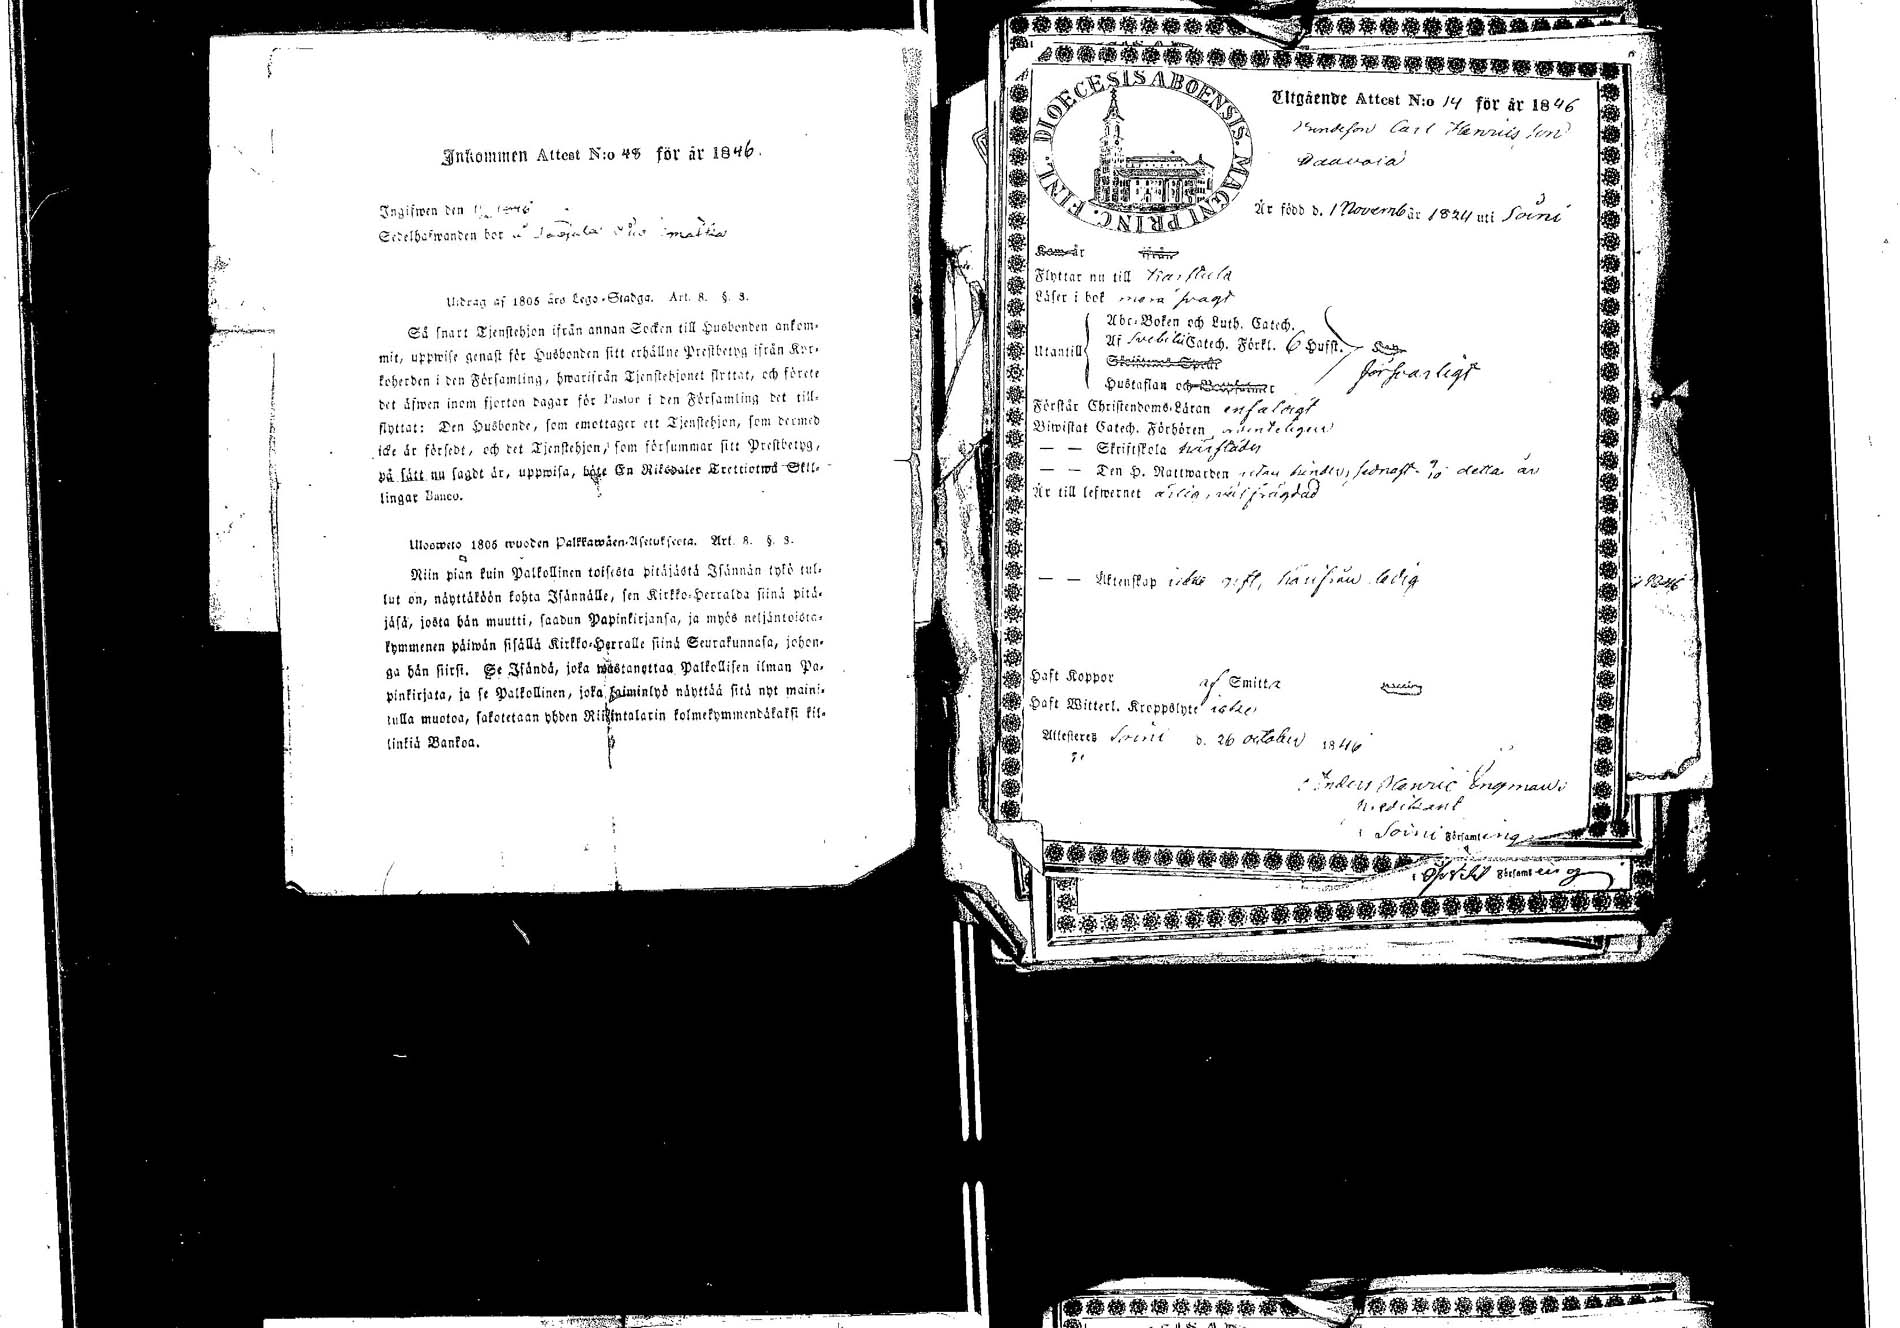 Inkommen Attest N:o 48 för år 1846.
Ingifwen den 1846
Sedelhafwanden bor å
Utdrag af 1805 års Lego-Stadga. Art. 8. §. 3.
Så snart Tjenstehjon ifrån annan Socken till Husbonden ankom-
mit, uppwise genast för Husbonden sitt erhållne Prestbetyg ifrån Kyr-
koherden i den Församling, hwarifrån Tjenstehjonet flyttat, och förete
det äfwen inom fjorton dagar för Pastor i den Församling det till-
flyttat: Den Husbonde, som emottager ett Tjenstehjon, som dermed
icke är försedt, och det Tjenstehjon, som försummar sitt Prestbetyg,
på sätt nu sagdt är, uppwisa, böte En Riksdaler Trettiotwå Skil-
lingar Banco.
Ulosweto 1805 wuoden Palkkawäen-Asetuksesta. Art. 8. §. 3.
Niin pian kuin Palkollinen toisesta pitäjästä Isännän tykö tul-
lut on, näyttäköön kohta Isännälle, sen Kirkko-Herralda siinä pitä-
jäsä, josta hän muutti, saadun Papinkirjansa, ja myös neljäntoista-
kymmenen päiwän sisällä Kirkko-Herralle siinä Seurakunnasa, johon-
ga hän siirsi. Se Isändä, joka wastanottaa Palkollisen ilman Pa-
pinkirjata, ja se Palkollinen, joka laiminlyö näyttää sitä nyt maini-
tulla muotoa, sakotetaan yhden Riikintalarin kolmekymmendäkaksi kil-
linkiä Bankoa.
DIOECESIS ABOENSIS. MAGNI PRINC. FINL.
Utgående Attest N:o 14 för år 1846
Bondeson Carl Henricsson
Är född d. 1 Novemb år 1824 uti Soini
Kom år ifrån
Flyttar nu till Karstula
Läser i bok
Abc-Boken och Luth. Catech.
Utantill Af Svebilii Catech. Förkl. 6 Hufst.
försvarligt
Hustaflan och
Förstår Christendoms-Läran enfaldigt
Biwistat Catech. Förhören
— — Skriftskola härstädes
— — Den H. Nattwarden utan hinder, sednast 9/10 detta år
Är till lefwernet ärlig, välfrägdad
— — Äktenskap icke gift, härifrån ledig
Haft Koppor af Smitta
Haft Witterl. Kroppslyte icke
Attesteres Soini d. 26 october 1846
Anders Henric Engman
Predikant
i Soini Församling
Församling
1846